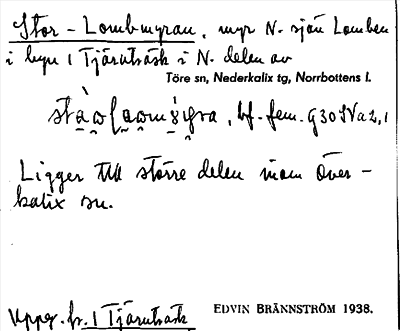 Stor-Lombmyran, myr N. sjön Lomben
i byn 1 Tjärnträsk i N. delen av
Töre sn, Nederkalix tg, Norrbottens l.
bf. fem.
Ligger till större delen inom Över-
kalix sn.
Uppg. fr. 1 Tjärnträsk
EDVIN BRÄNNSTRÖM 1938.